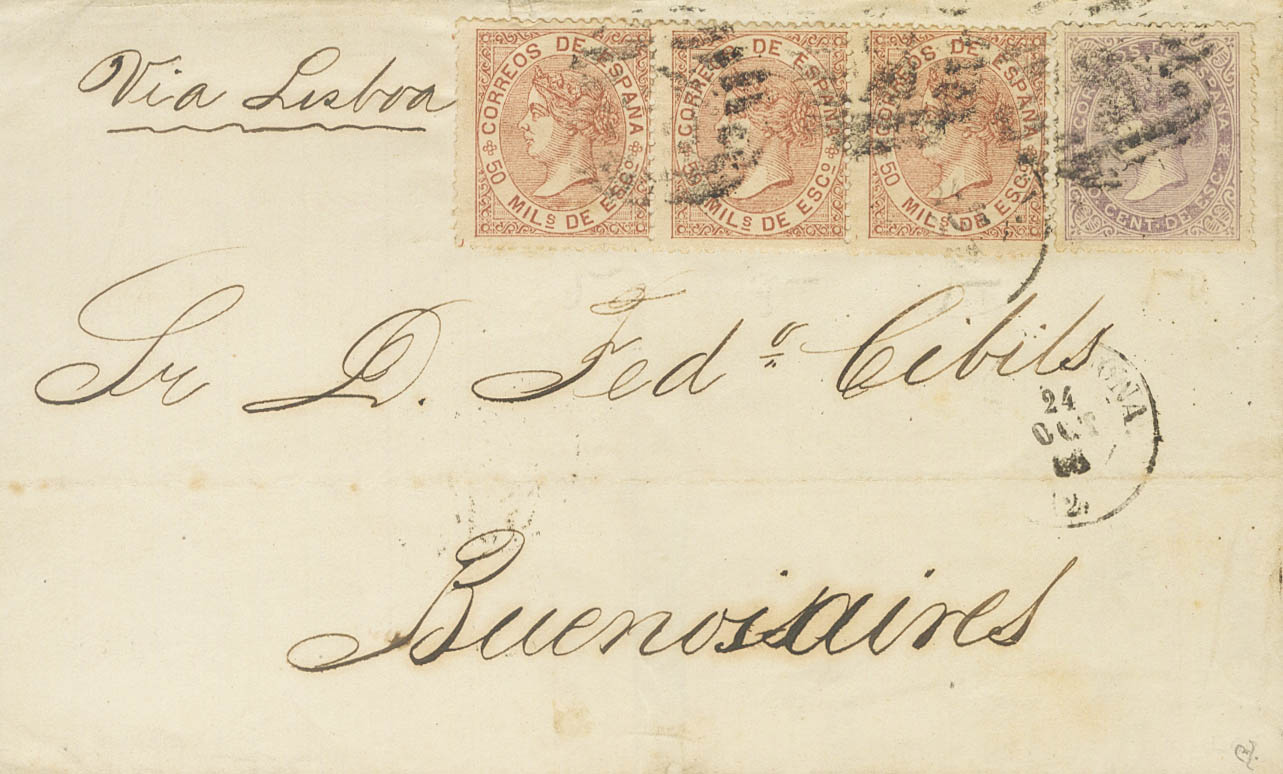 Via Lisboa
CORREOS DE ESPAÑA
50 MILS DE ESCO
CORREOS DE ESPAÑA
MILS DE ESCO
CORREOS DE ESPAÑA
50 MILS DE ESCO
CENT. DE ESCO
Sr D. Fedo Cibils
ONA
24
OCT
Buenosaires